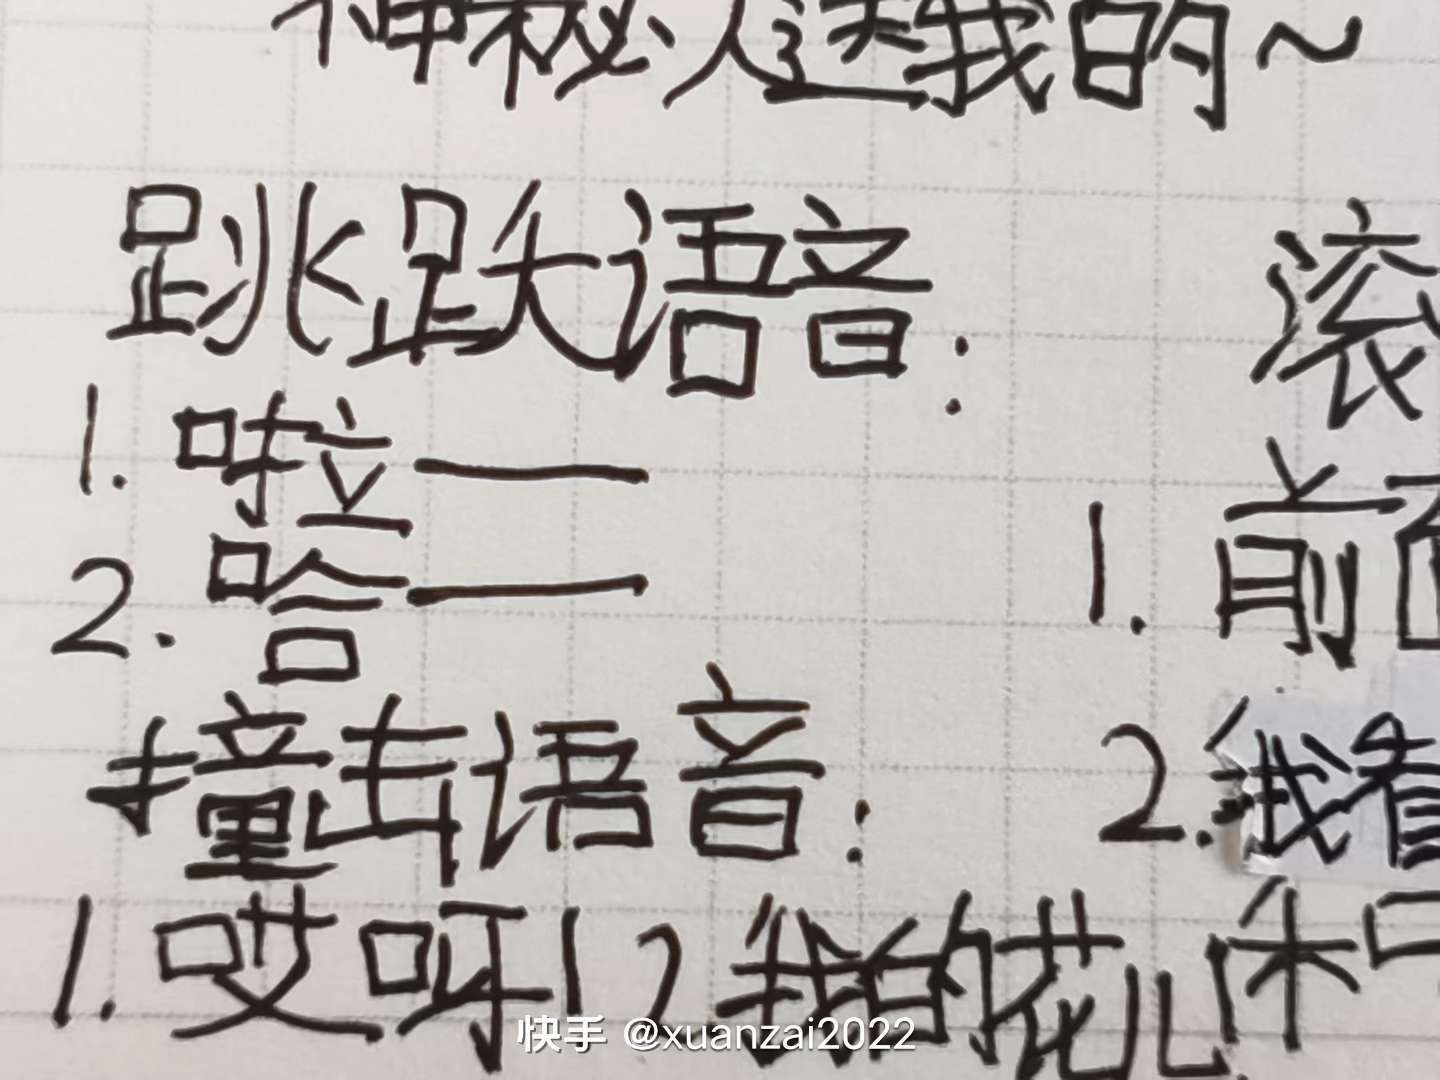 神秘人送我的~
跳跃语音：
滚
1. 啦——
2. 哈——
1. 前
撞击语音：
2. 我看
1. 哎呀！2 我的花儿
快手 @xuanzai2022